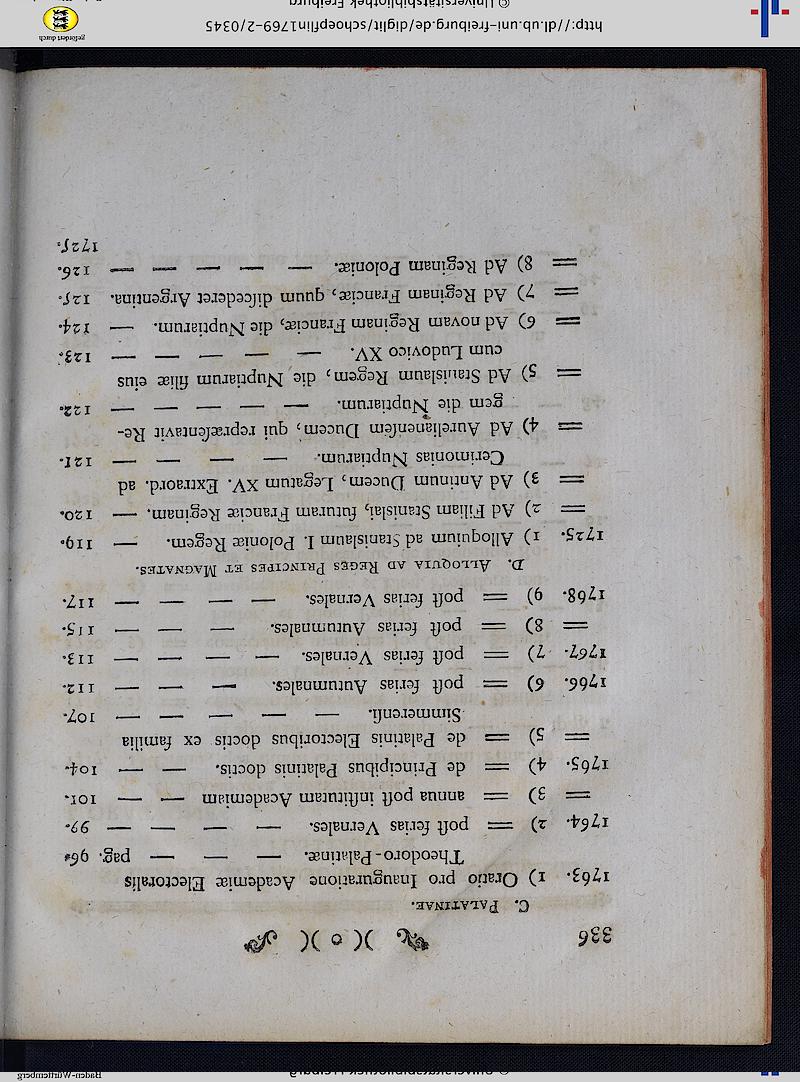 336 )( o )(
C. PALATINAE.
1763. 1) Oratio pro Inauguratione Academiæ Electoralis
Theodoro-Palatinæ. — — — pag. 96.
1764. 2) == post ferias Vernales. — — — — — 99.
== 3) == annua post institutam Academiam — — 101.
1765. 4) == de Principibus Palatinis doctis. — — 104.
== 5) == de Palatinis Electoribus doctis ex familia
Simmerensi. — — — — — — 107.
1766. 6) == post ferias Autumnales. — — — — 112.
1767. 7) == post ferias Vernales. — — — — — 113.
== 8) == post ferias Autumnales. — — — 115.
1768. 9) == post ferias Vernales. — — — — 117.
D. ALLOQUIA AD REGES PRINCIPES ET MAGNATES.
1725. 1) Alloquium ad Stanislaum I. Poloniæ Regem. — 119.
== 2) Ad Filiam Stanislai, futuram Franciæ Reginam. — 120.
== 3) Ad Antinum Ducem, Legatum XV. Extraord. ad
Cerimonias Nuptiarum. — — — — — 121.
== 4) Ad Aurelianensem Ducem, qui repræsentavit Re-
gem die Nuptiarum. — — — — — 122.
== 5) Ad Stanislaum Regem, die Nuptiarum filiæ eius
cum Ludovico XV. — — — — — 123.
== 6) Ad novam Reginam Franciæ, die Nuptiarum. — 124.
== 7) Ad Reginam Franciæ, quum discederet Argentina. 125.
== 8) Ad Reginam Poloniæ. — — — — — 126.
1725.
http://dl.ub.uni-freiburg.de/diglit/schoepflin1769-2/0345
© Universitätsbibliothek Freiburg
gefördert durch
Baden-Württemberg